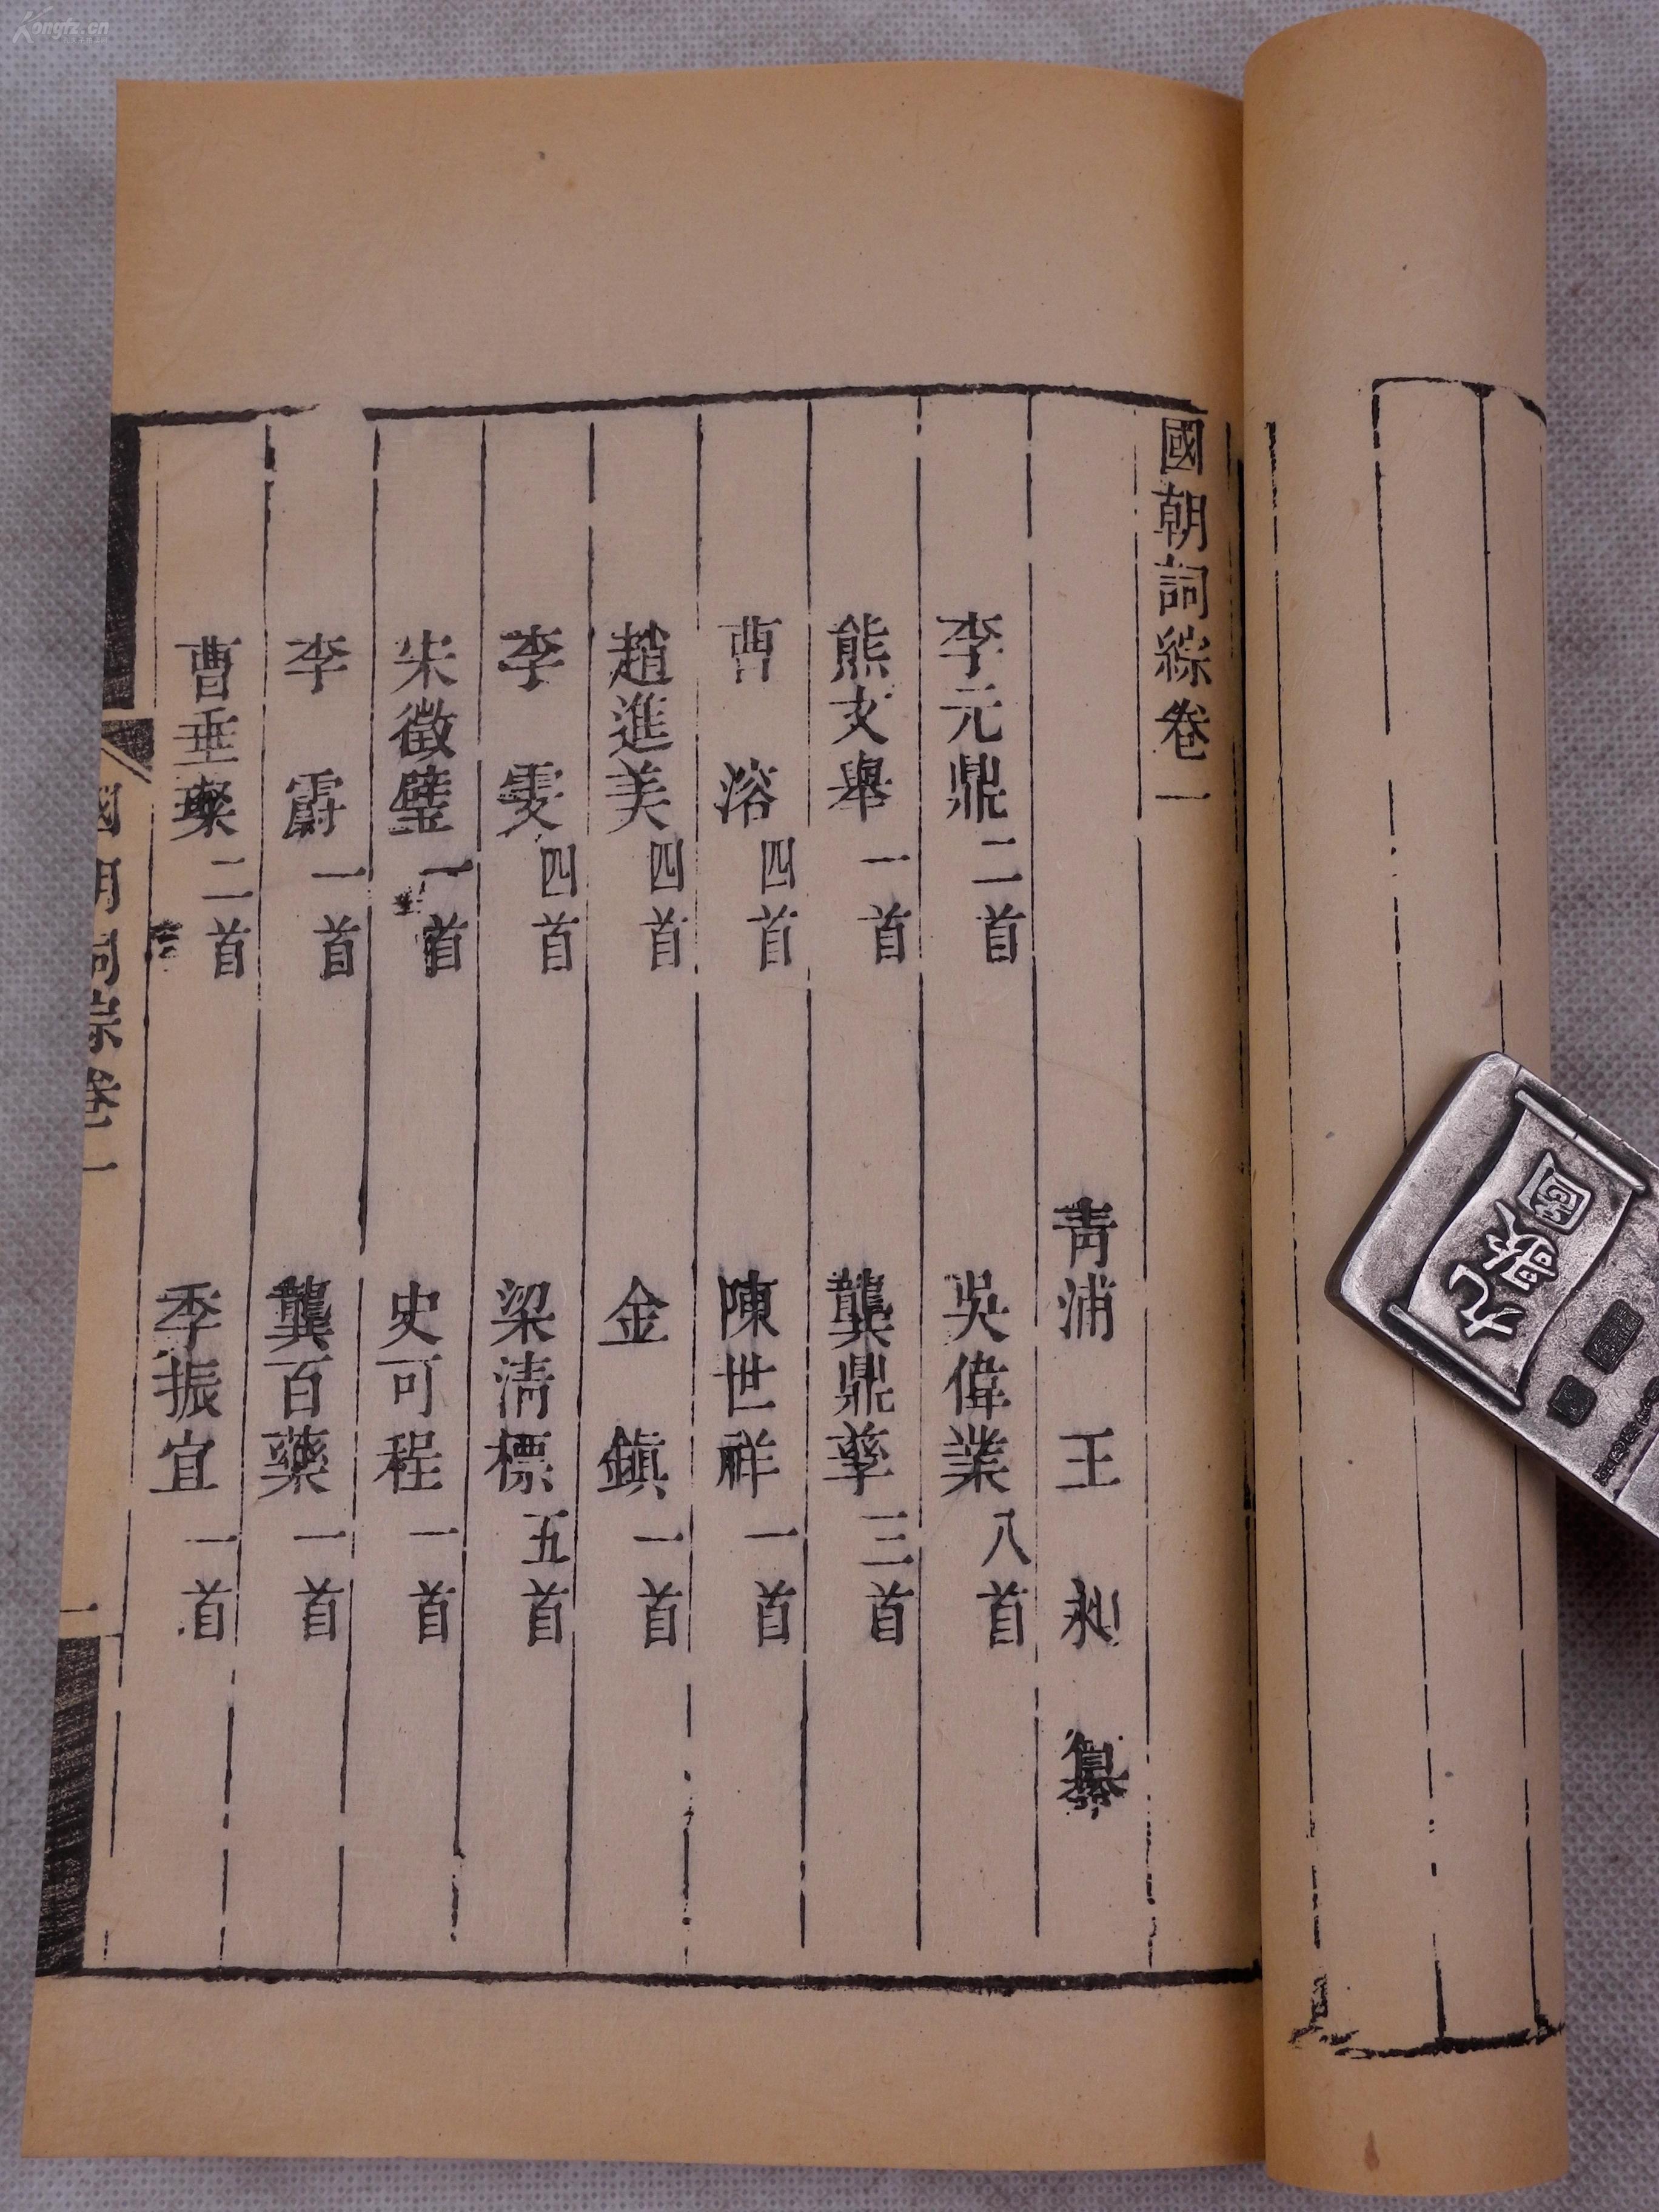 國朝詞綜卷一
青浦 王 昶 纂
李元鼎二首 吳偉業八首
熊文舉一首 龔鼎孳三首
曹 溶四首 陳世祥一首
趙進美四首 金 鎮一首
李 雯四首 梁清標五首
朱徵璧一首 史可程一首
李 霨一首 龔百藥一首
曹垂璨二首 季振宜一首
國朝詞綜卷一
一
Kongfz.cn